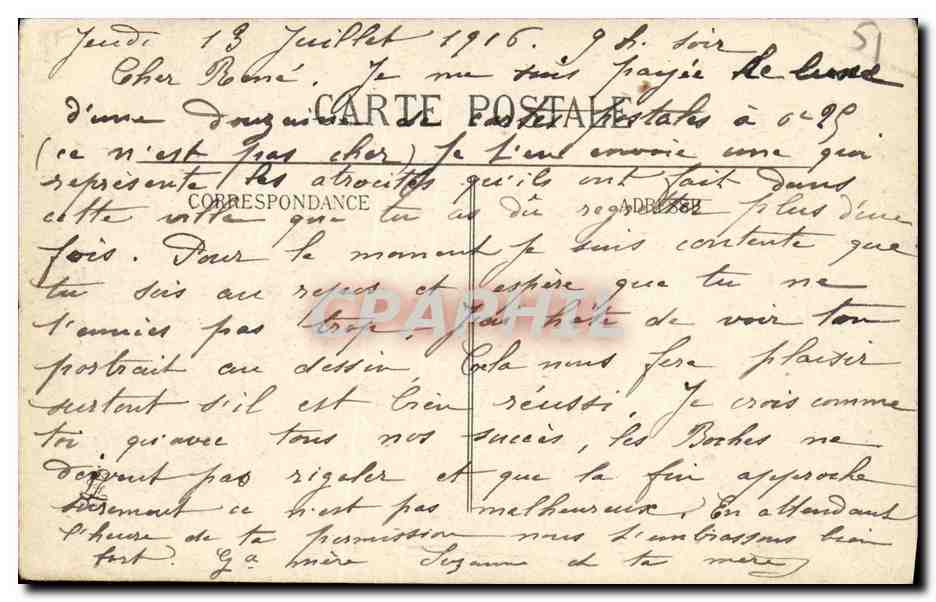 Jeudi 13 Juillet 1916. 9 h. soir
51
Cher René. Je me suis payée le luxe
CARTE POSTALE
d'une douzaine de cartes postales à 0f 95
(ce n'est pas cher) Je t'en envoie une qui
représente les atrocités qu'ils ont fait dans
CORRESPONDANCE
ADRESSE
cette ville que tu as dû regretter plus d'une
fois. Pour le moment je suis contente que
tu sois au repos et espère que tu ne
CPAPHIL
t'ennuies pas trop. J'ai hâte de voir ton
portrait au dessin. Cela nous fera plaisir
surtout s'il est bien réussi. Je crois comme
toi qu'avec tous nos succès, les Boches ne
doivent pas rigoler et que la fin approche
sûrement ce n'est pas malheureux. En attendant
l'heure de ta permission nous t'embrassons bien
fort. Gd mère Suzanne et ta mère